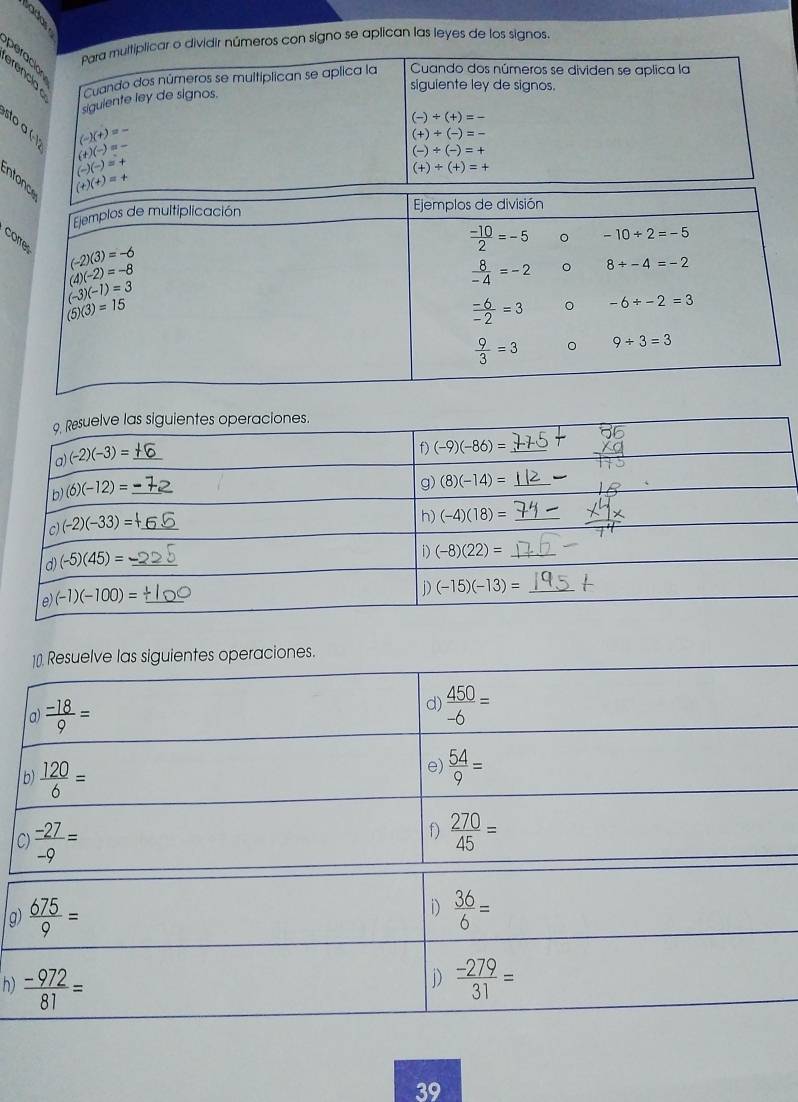 Para multiplicar o dividir números con signo se aplican las leyes de los signos.
Cuando dos números se multiplican se aplica la
siguiente ley de signos.
(-)(+) = -
(+)(-) = -
(-)(-) = +
(+)(+) = +
Cuando dos números se dividen se aplica la
siguiente ley de signos.
(-) ÷ (+) = -
(+) ÷ (-) = -
(-) ÷ (-) = +
(+) ÷ (+) = +
Ejemplos de multiplicación
(-2)(3) = -6
(4)(-2) = -8
(-3)(-1) = 3
(5)(3) = 15
Ejemplos de división
-10/2 = -5 o -10 ÷ 2 = -5
8/-4 = -2 o 8 ÷ -4 = -2
-6/-2 = 3 o -6 ÷ -2 = 3
9/3 = 3 o 9 ÷ 3 = 3
9. Resuelve las siguientes operaciones.
a) (-2)(-3) = +6
b) (6)(-12) = -72
c) (-2)(-33) = +66
d) (-5)(45) = -225
e) (-1)(-100) = +100
f) (-9)(-86) = 775 +
g) (8)(-14) = 112 -
h) (-4)(18) = 74 -
i) (-8)(22) = 176 -
j) (-15)(-13) = 195 +
10. Resuelve las siguientes operaciones.
a) -18/9 =
b) 120/6 =
c) -27/-9 =
d) 450/-6 =
e) 54/9 =
f) 270/45 =
g) 675/9 =
h) -972/81 =
i) 36/6 =
j) -279/31 =
39